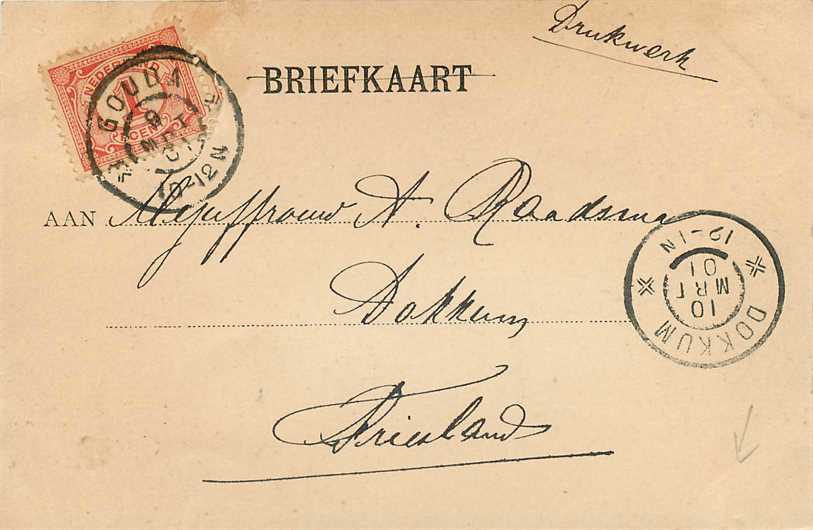 Drukwerk
BRIEFKAART
NEDERLAND
1
CENT
GOUDA
9
MRT
01
10-12N
AAN Mejuffrouw A. Raadsma
Dokkum
Friesland
DOKKUM
10
MRT
01
12-1N